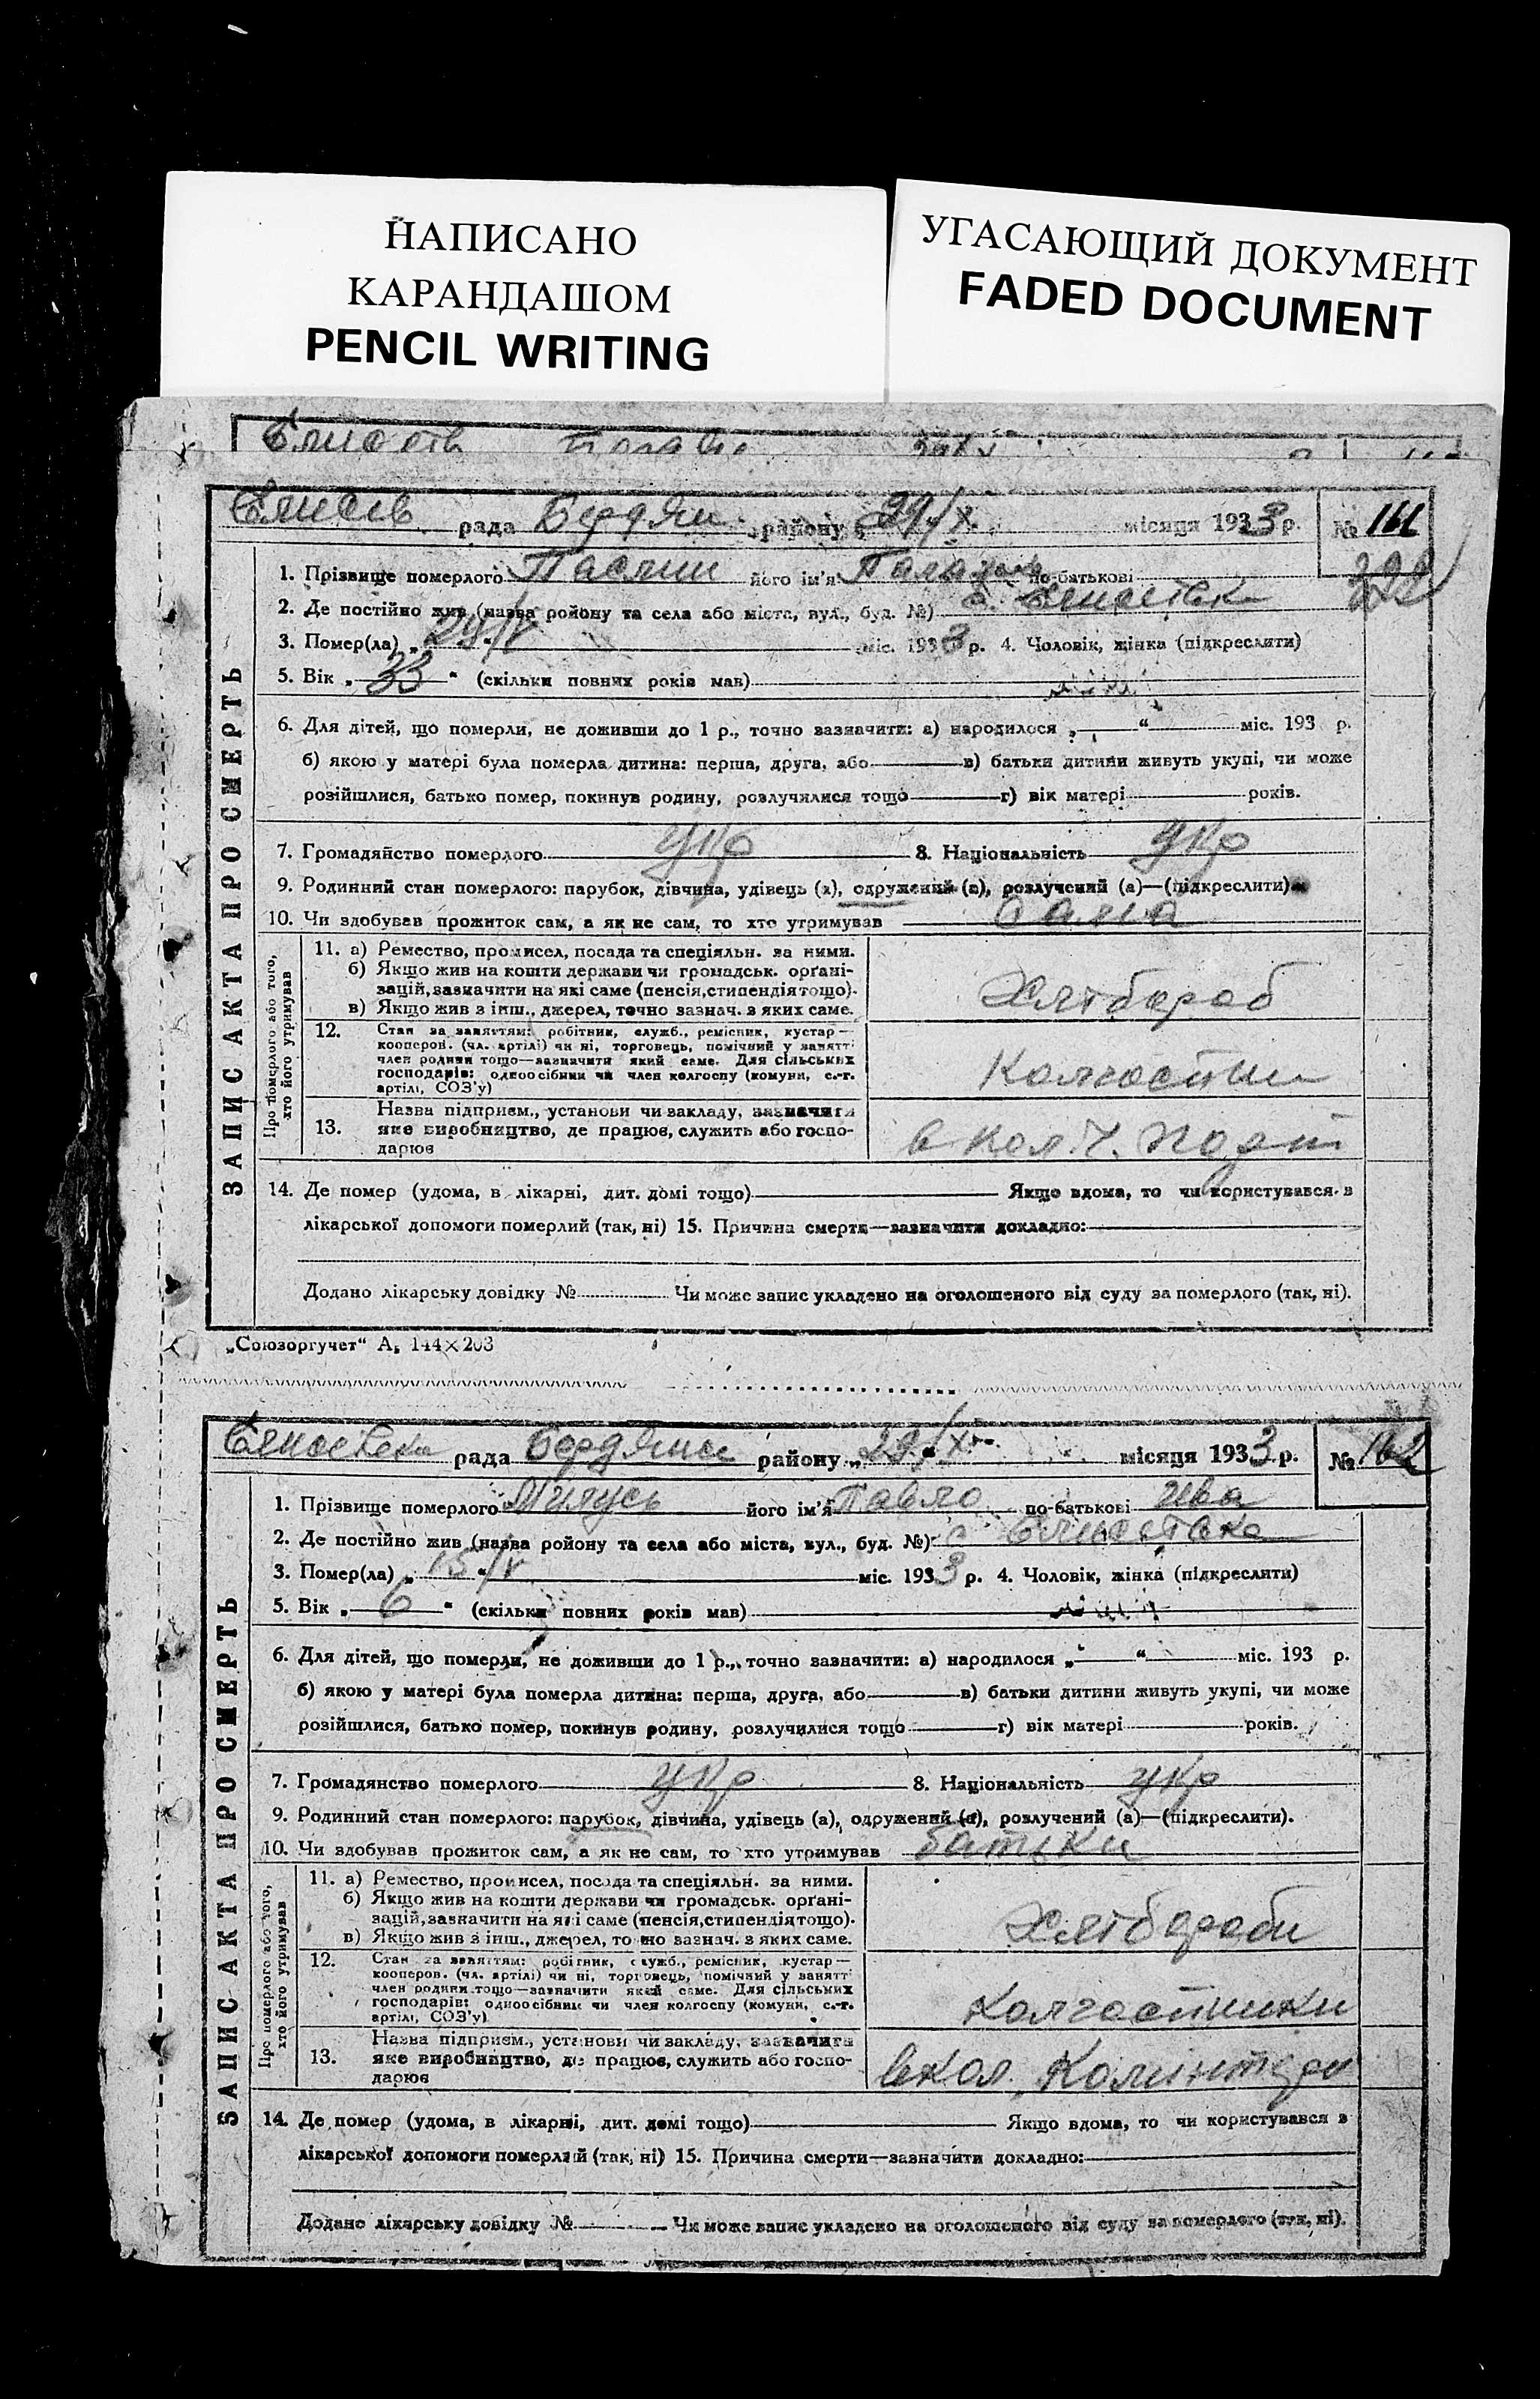 НАПИСАНО
КАРАНДАШОМ
PENCIL WRITING
УГАСАЮЩИЙ ДОКУМЕНТ
FADED DOCUMENT
рада Бердян району 29/X місяця 1933 р. № 161
ЗАПИС АКТА ПРО СМЕРТЬ
1. Прізвище померлого його ім'я по-батькові
2. Де постійно жив (назва ройону та села або міста, вул., буд. №) с.
3. Помер(ла) „ міс. 1933 р. 4. Чоловік, жінка (підкреслити)
5. Вік „ 33 “ (скільки повних років мав)
6. Для дітей, що померли, не доживши до 1 р., точно зазначити: а) народилося „ “ міс. 193 р.
б) якою у матері була померла дитина: перша, друга, або в) батьки дитини живуть укупі, чи може
розійшлися, батько помер, покинув родину, розлучилися тощо г) вік матері років.
7. Громадянство померлого укр 8. Національність укр
9. Родинний стан померлого: парубок, дівчина, удівець (а), одружений (а), розлучений (а)—(підкреслити)
10. Чи здобував прожиток сам, а як не сам, то хто утримував сама
Про померлого або того, хто його утримував
11. а) Ремество, промисел, посада та спеціяльн. за ними.
б) Якщо жив на кошти держави чи громадськ. орґані-
зацій, зазначити на які саме (пенсія, стипендія тощо).
в) Якщо жив з інш., джерел, точно зазнач. з яких саме.
Хлібороб
12. Стан за заняттям: робітник, служб., ремісник, кустар—
кооперов. (чл. артілі) чи ні, торговець, помічний у занятті
член родини тощо—зазначити який саме. Для сільських
господарів: одноосібник чи член колгоспу (комуни, с.-г.
артілі, СОЗ'у)
13. Назва підприєм., установи чи закладу, зазначити
яке виробництво, де працює, служить або госпо-
дарює
14. Де помер (удома, в лікарні, дит. домі тощо) Якщо вдома, то чи користувався з
лікарської допомоги померлий (так, ні) 15. Причина смерти—зазначити докладно:
Додано лікарську довідку № Чи може запис укладено на оголошеного від суду за померлого (так, ні).
„Союзоргучет“ А₅ 144×203
рада району „29/ місяця 1933 р. № 162
ЗАПИС АКТА ПРО СМЕРТЬ
1. Прізвище померлого його ім'я Павло по-батькові Ива
2. Де постійно жив (назва ройону та села або міста, вул., буд. №) с
3. Помер(ла) „ 15/V міс. 1933 р. 4. Чоловік, жінка (підкреслити)
5. Вік „ 6 “ (скільки повних років мав)
6. Для дітей, що померли, не доживши до 1 р., точно зазначити: а) народилося „ “ міс. 193 р.
б) якою у матері була померла дитина: перша, друга, або в) батьки дитини живуть укупі, чи може
розійшлися, батько помер, покинув родину, розлучилися тощо г) вік матері років.
7. Громадянство померлого укр 8. Національність укр
9. Родинний стан померлого: парубок, дівчина, удівець (а), одружений (а), розлучений (а)—(підкреслити).
10. Чи здобував прожиток сам, а як не сам, то хто утримував батьки
Про померлого або того, хто його утримував
11. а) Ремество, промисел, посада та спеціяльн. за ними.
б) Якщо жив на кошти держави чи громадськ. орґані-
зацій, зазначити на які саме (пенсія, стипендія тощо).
в) Якщо жив з інш., джерел, точно зазнач. з яких саме.
Хлібороби
12. Стан за заняттям: робітник, служб., ремісник, кустар—
кооперов. (чл. артілі) чи ні, торговець, помічний у занятті
член родини тощо—зазначити який саме. Для сільських
господарів: одноосібник чи член колгоспу (комуни, с.-г.
артілі, СОЗ'у)
колгоспники
13. Назва підприєм., установи чи закладу, зазначити
яке виробництво, де працює, служить або госпо-
дарює
в кол. Комінтерн
14. Де помер (удома, в лікарні, дит. домі тощо) Якщо вдома, то чи користувався з
лікарської допомоги померлий (так, ні) 15. Причина смерти—зазначити докладно:
Додано лікарську довідку № Чи може запис укладено на оголошеного від суду за померлого (так, ні).